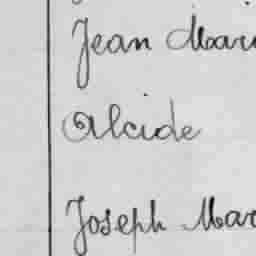 Jean Mari
Alcide
Joseph Mar